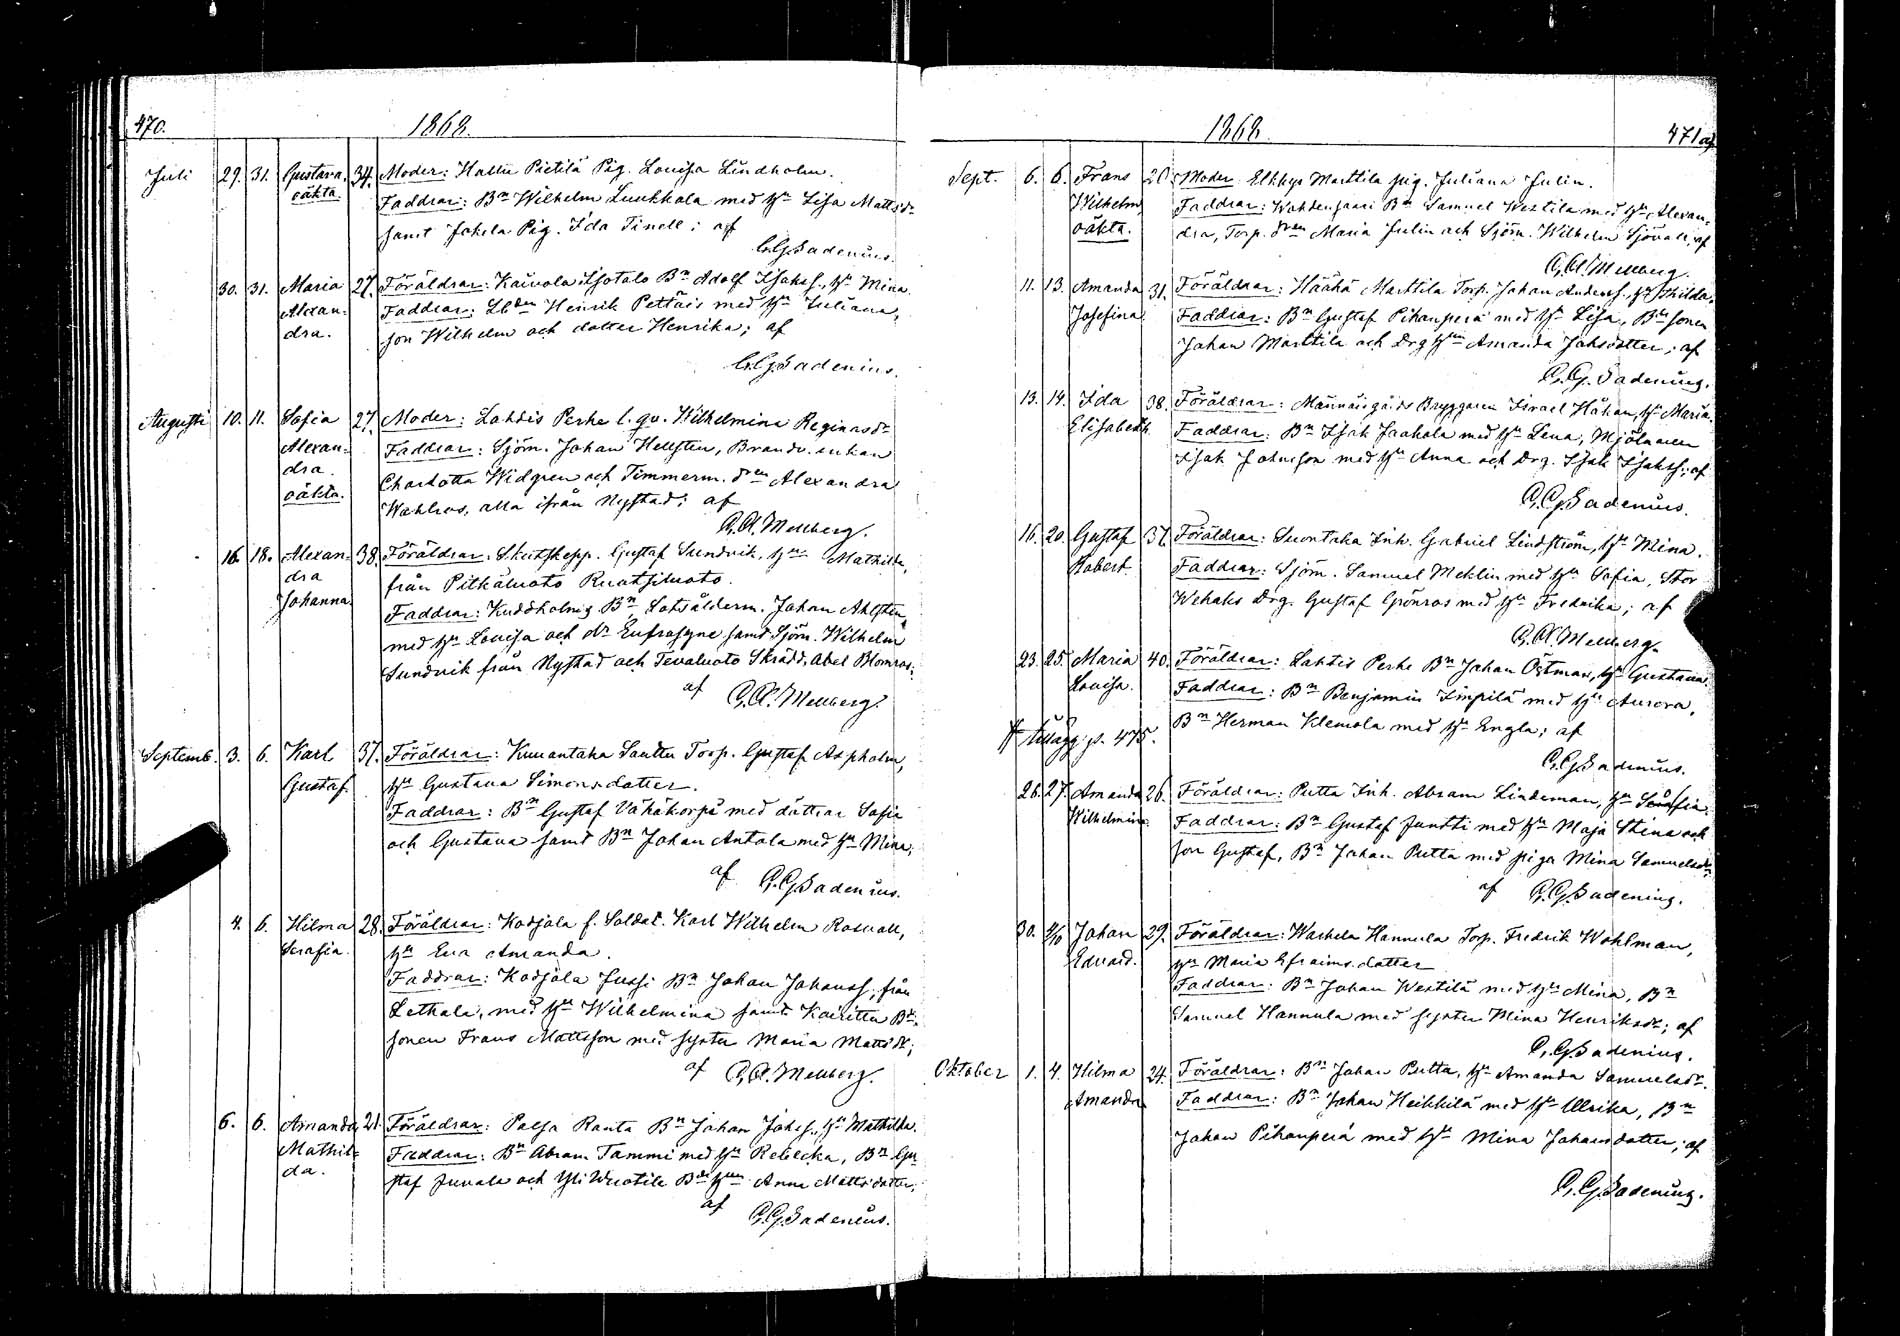 470. 1868.
Juli 29. 31. Gustava. 34. Moder: Hallu Pietilä Pig. Lovisa Lindholm.
oäkta. Faddrar: Bn Wilhelm Luukkala med Hu Lisa Mattsdr
samt Jakola Pig. Ida Tinell; af
C.G. Sadenius.
30. 31. Maria 27. Föräldrar: Kaivola Isotalo Bn Adolf Isaks., Hu Mina.
Alexan- Faddrar: Lbden Henrik Pettäis med Hu Juliana,
dra. son Wilhelm och dotter Henrika; af
C.G. Sadenius.
Augusti 10. 11. Sofia 27. Moder: Lahdis Perhe l. qv. Wilhelmina Reginasdr
Alexan- Faddrar: Sjöm. Johan Hellsten, Brandv. enkan
dra. Charlotta Widgren och Timmerm. dren Alexandra
oäkta. Wahlros, alla ifrån Nystad; af
G.A. Mellberg.
16. 18. Alexan- 38. Föräldrar: Skutskepp. Gustaf Sundvik, Hu Mathilda,
dra från Pitkäluoto Ruatsiluoto.
Johanna Faddrar: Kuddholmg Bn, Lotsålderm. Johan Ahlsten
med Hu Lovisa och dr Eufrosyne samt Sjöm. Wilhelm
Sundvik från Nystad och Tevaluoto Skrädd. Abel Blomros;
af G.A. Mellberg.
Septemb. 3. 6. Karl 37. Föräldrar: Kuuantaka Santtu Torp. Gustaf Aspholm,
Gustaf Hu Gustava Simonsdotter.
Faddrar: Bn Gustaf Vähäkorpi med döttrar Sofia
och Gustava samt Bn Johan Antola med Hu Mina;
af C.G. Sadenius.
4. 6. Hilma 28. Föräldrar: Kodjala f. Soldat. Karl Wilhelm Rosvall,
Serafia. Hu Eva Amanda.
Faddrar: Kodjala Jussi Bn Johan Johanss. från
Lethala, med Hu Wilhelmina samt Kairittu Bde-
sonen Frans Mattsson med syster Maria Mattsdr;
af G.A. Mellberg.
6. 6. Amanda 21. Föräldrar: Palsa Ranta Bn Johan Jakss., Hu Mathilda.
Mathil- Faddrar: Bn Abram Tammi med Hu Rebecka, Bn Gu-
da. staf Juvala och Yli Wuotila Bde Hun Anna Mattsdotter;
af
C.G. Sadenius.
1868. 471
Sept. 6. 6. Frans 20. Moder Elkkys Marttila pig. Juliana Julin.
Wilhelm Faddrar: Wohdensaari Bn Samuel Westila med Hu Alexan-
oäkta. dra, Torp. dren Maria Julin och Sjöm. Wilhelm Sjövall; af
G.A. Mellberg.
11. 13. Amanda 31. Föräldrar: Häähä Marttila Torp. Johan Anderss., Hu Mathilda.
Josefina Faddrar: Bn Gustaf Pihanperä med Hu Lisa, Bde sonen
Johan Marttila och Drg Hun Amanda Jaksdotter; af
C.G. Sadenius.
13. 14. Ida 38. Föräldrar: Männäisgårds Bryggaren Israel Håkan, Hu Maria.
Elisabeth. Faddrar: Bn Isak Jaakola med Hu Lena, Mjölnaren
Isak Johnsson med Hu Anna och Drg. Isak Isakss; af
C.G. Sadenius.
16. 20. Gustaf 37. Föräldrar: Suontaka Inh. Gabriel Lindström, Hu Mina.
Robert. Faddrar: Sjöm. Samuel Meklin med Hu Sofia, Stor
Wehaks Drg. Gustaf Grönros med Hu Fredrika; af
G.A. Mellberg.
23. 25. Maria 40. Föräldrar: Lahtis Perhe Bn Johan Östman, Hu Gustava.
Lovisa. Faddrar: Bn Benjamin Simpilä med Hu Aurora,
Bn Herman Klemola med Hu Engla; af
# tillägg p. 475.
C.G. Sadenius.
26. 27. Amanda 26. Föräldrar: Putta Inh. Abram Lindeman, Hu Serafia.
Wilhelmina. Faddrar: Bn Gustaf Juntti med Hu Maja Stina och
son Gustaf, Bn Johan Putta med piga Mina Samuelsdr;
af C.G. Sadenius.
30. 2/10 Johan 29. Föräldrar: Warhela Hannula Torp. Fredrik Wahlman,
Edvard. Hu Maria Efraimsdotter
Faddrar: Bn Johan Westilä med Hu Mina, Bn
Samuel Hannula med syster Mina Henriksdr; af
C.G. Sadenius.
Oktober 1. 4. Hilma 24. Föräldrar: Bn Johan Putta, Hu Amanda Samuelsdr.
Amanda Faddrar: Bn Johan Heikkilä med Hu Ulrika, Bn
Johan Pihanperä med Hu Mina Johansdotter; af
C.G. Sadenius.